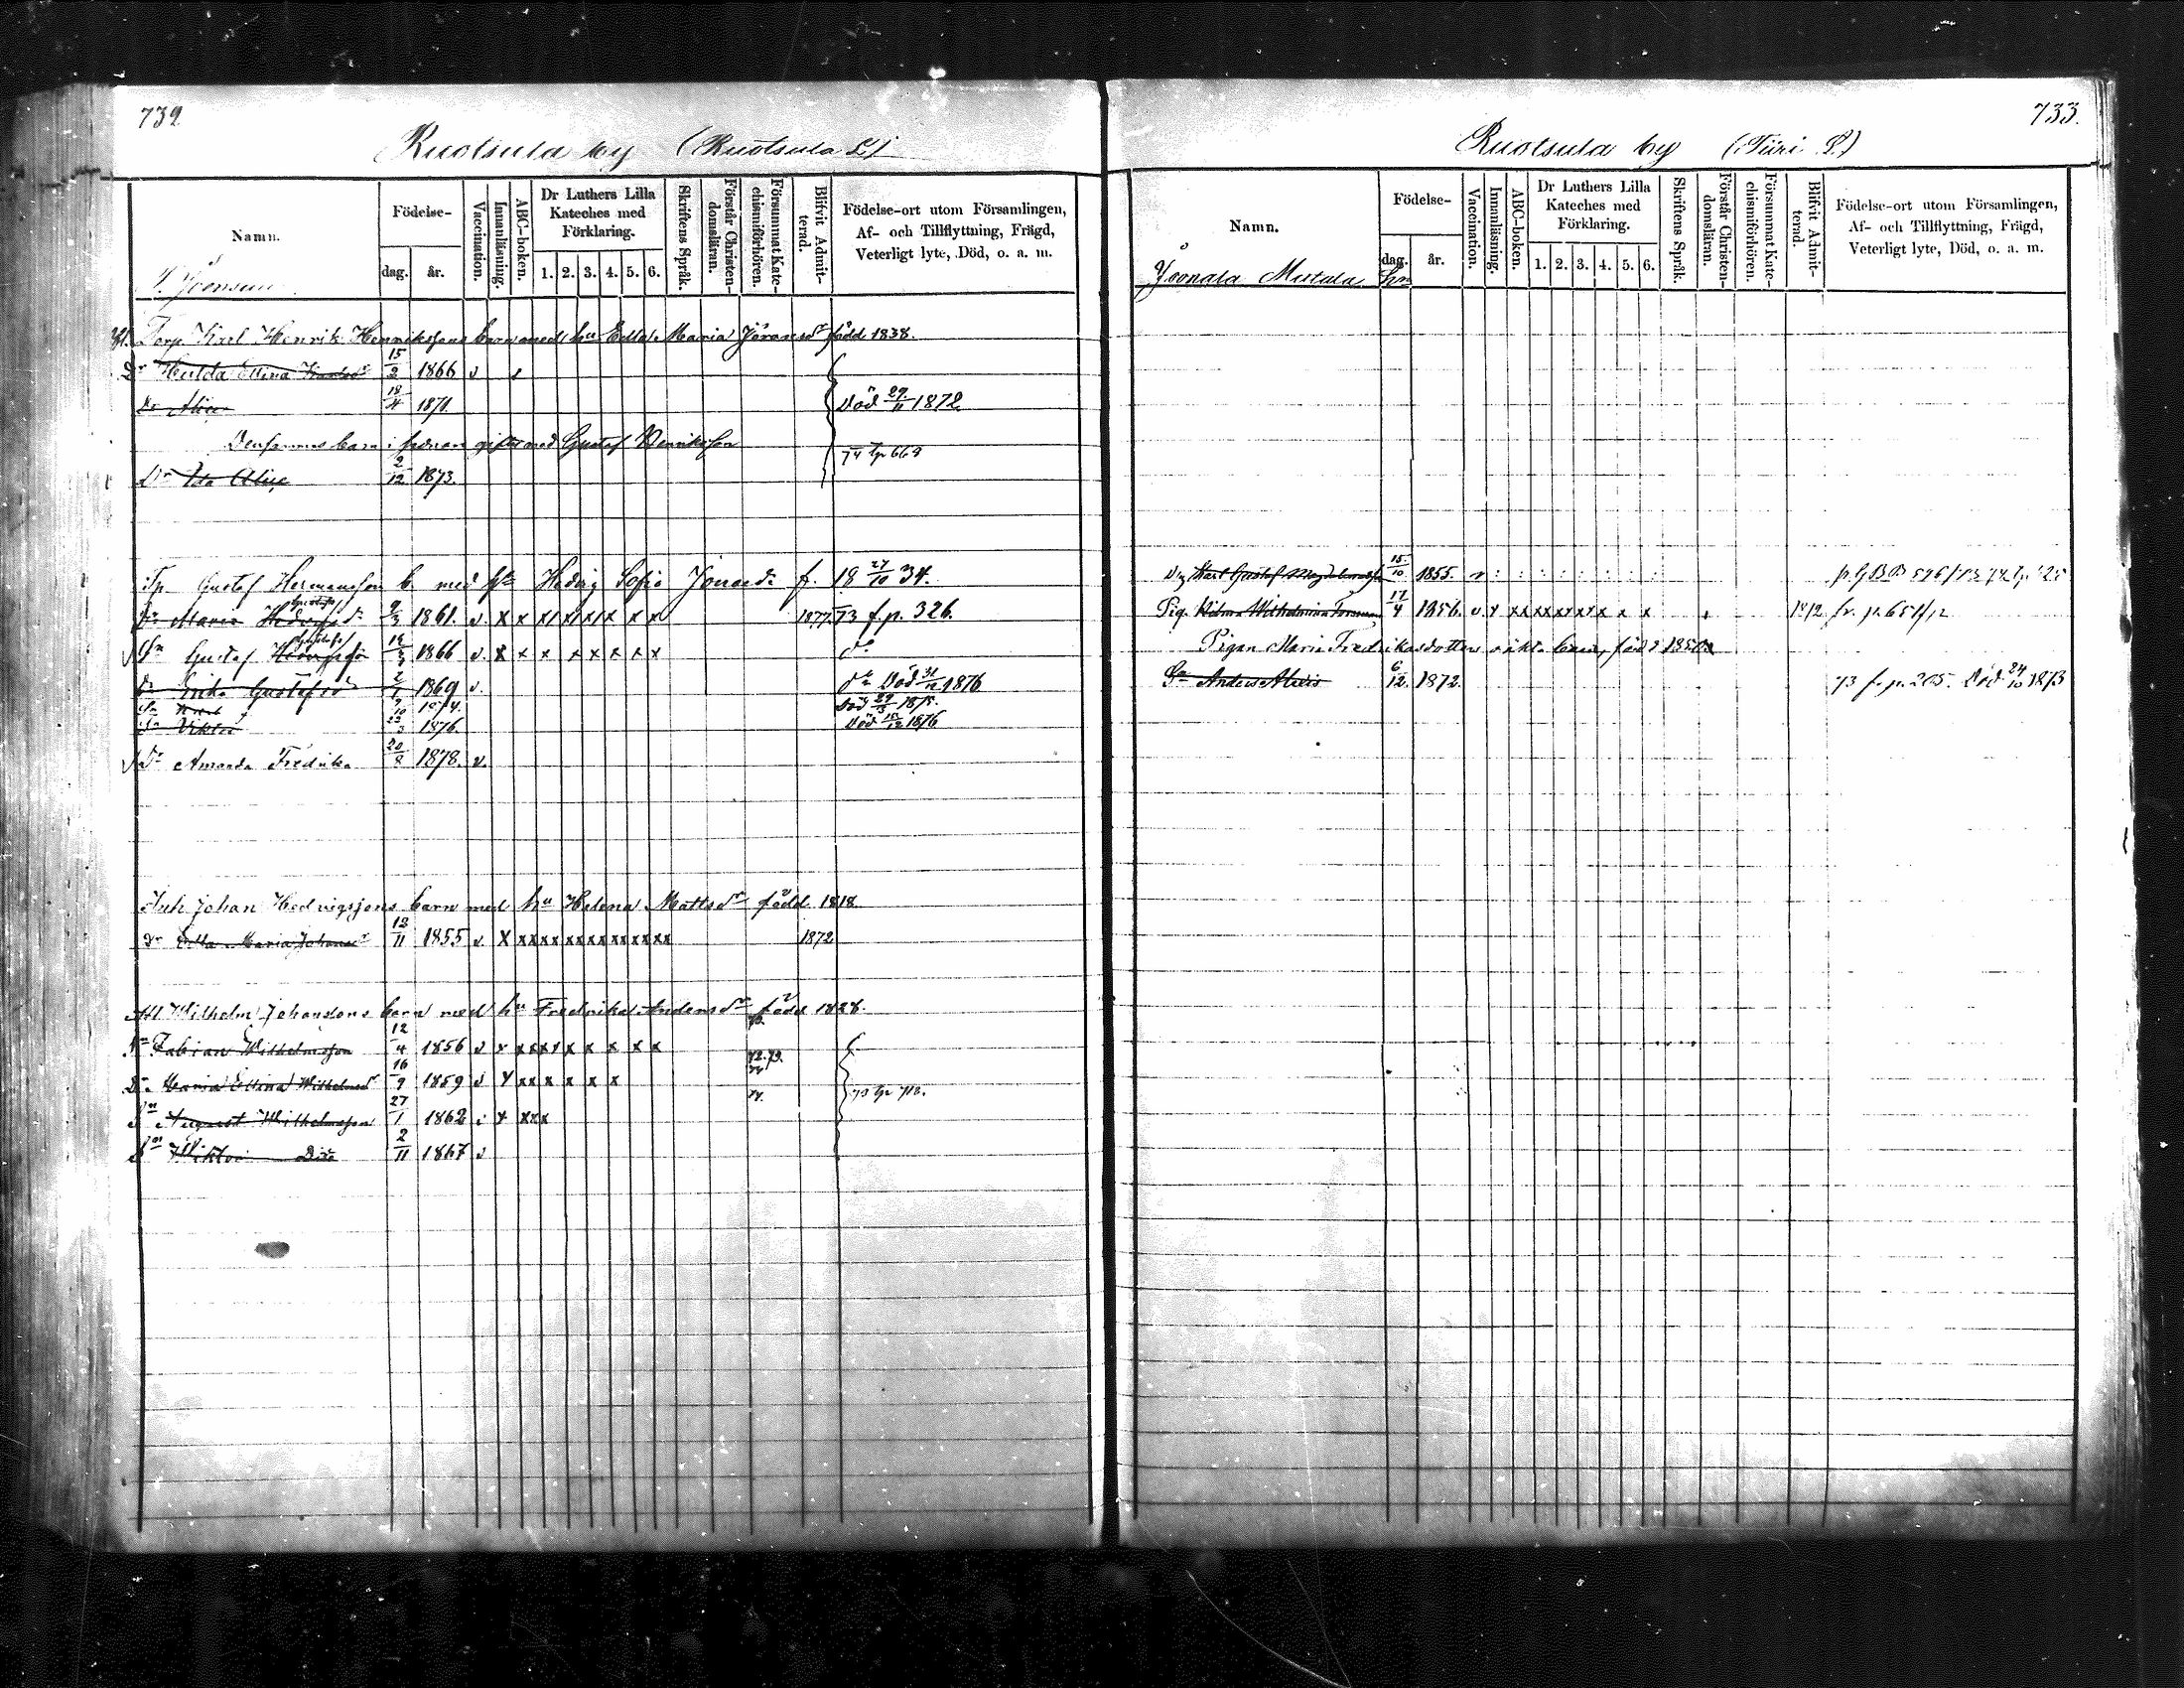 732
Ruotsula by (Ruotsula L)
Namn.
Födelse-
dag.
år.
Vaccination.
Innanläsning.
ABC-boken.
Dr Luthers Lilla Kateches med Förklaring.
1. 2. 3. 4. 5. 6.
Skriftens Språk.
Förstår Christen-domsläran.
Försummat Kate-chismiförhören.
Blifvit Admit-terad.
Födelse-ort utom Församlingen,
Af- och Tillflyttning, Frägd,
Veterligt lyte, Död, o. a. m.
Torp. Karl Henrik Henrikssons barn med hu Edla Maria Göransdr född 1838.
Dr Hulda Elina Karlsdr 15/2 1866 v
Dr Alice 18/4 1871. Död 29/11 1872
Densammes barn i gifte med Gustaf Henriksson
74 tp 668
Dr Ida Alice 2/12 1873.
Tp Gustaf Hermansson b. med hu Hedvig Sofia Jonasdr f. 18 27/10 34.
Dr Maria Gustafs dr 9/3 1861. v. x x x x x x x x x 1877. 73 f.p. 326.
Sn Gustaf Gustafs 14/3 1866 v. x x x x x x x x do
Dr Erika Gustafsdr 2/1 1869 v. do Död 31/12 1876
Sn Karl 9/10 1874. Död 29/3 1875.
Sn Viktor 22/3 1876. Död 15/12 1876
Dr Amanda Fredrika 20/8 1878. v.
Inh. Johan Hedvigssons barn med hu Helena Mattsdr född 1818
Dr Edla Maria Johansdr 12/11 1855 v x xx xx xx xx xx xx xx 1872
Wilhelm Johanssons barn med hu Fredrika Andersdr född 1828.
Sn Fabian Wilhelmsson 12/4 1856 v x xx xx x x x x x
Dr Maria Elina Wilhelmsdr 16/9 1859 v x xx x x x x 72.73.
Sn August Wilhelmsson 27/1 1862 v x xxx 75 tp 710.
Sn Viktor Dito 2/11 1867 v
733.
Ruotsula by (Tiiri L)
Namn.
Födelse-
dag.
år.
Vaccination.
Innanläsning.
ABC-boken.
Dr Luthers Lilla Kateches med Förklaring.
1. 2. 3. 4. 5. 6.
Skriftens Språk.
Förstår Christen-domsläran.
Försummat Kate-chismiförhören.
Blifvit Admit-terad.
Födelse-ort utom Församlingen,
Af- och Tillflyttning, Frägd,
Veterligt lyte, Död, o. a. m.
Karl Gustaf 15/10 1855. v
Pig. Wilhelmina 17/4 1856. v x xx xx xx x x x fr. p. 651/72
Pigan Maria Fredriksdotters barn, född
Sn Anders Alexis 6/12. 1872. 73 fr. p. 205. Död 24/10 1873